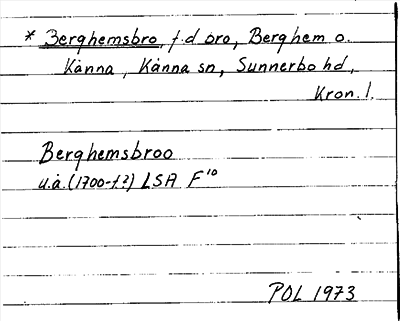 * Berghemsbro, f.d bro, Berghem o.
Kånna, Kånna sn, Sunnerbo hd,
Kron. l.
Berghemsbroo
u.å. (1700-t?) LSA F¹⁰
POL 1973